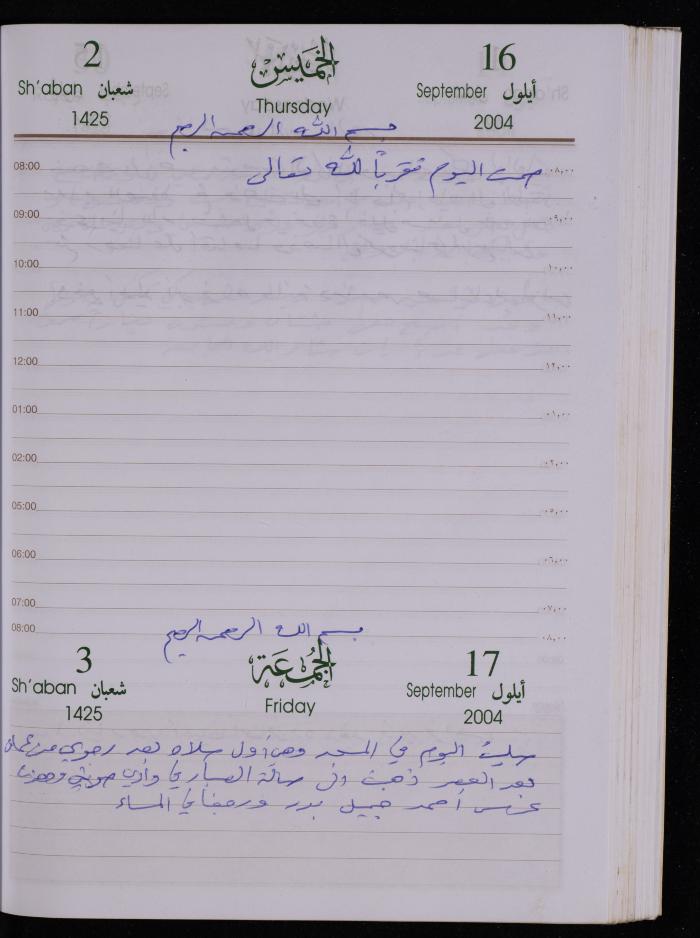 2 الخميس 16
Sh'aban شعبان Thursday September أيلول
1425 2004
بسم الله الرحمن الرحيم
08:00 صمت اليوم تقرباً لله تعالى ٠٨,٠٠
09:00 ٠٩,٠٠
10:00 ١٠,٠٠
11:00 ١١,٠٠
12:00 ١٢,٠٠
01:00 ٠١,٠٠
02:00 ٠٢,٠٠
05:00 ٠٥,٠٠
06:00 ٠٦,٠٠
07:00 ٠٧,٠٠
08:00 بسم الله الرحمن الرحيم ٠٨,٠٠
3 الجمعة 17
Sh'aban شعبان Friday September أيلول
1425 2004
صليت اليوم في المسجد وهي أول صلاة بعد رجوعي من عمان
بعد العصر ذهبت
عرس أحمد جميل بدر ورجعنا في المساء